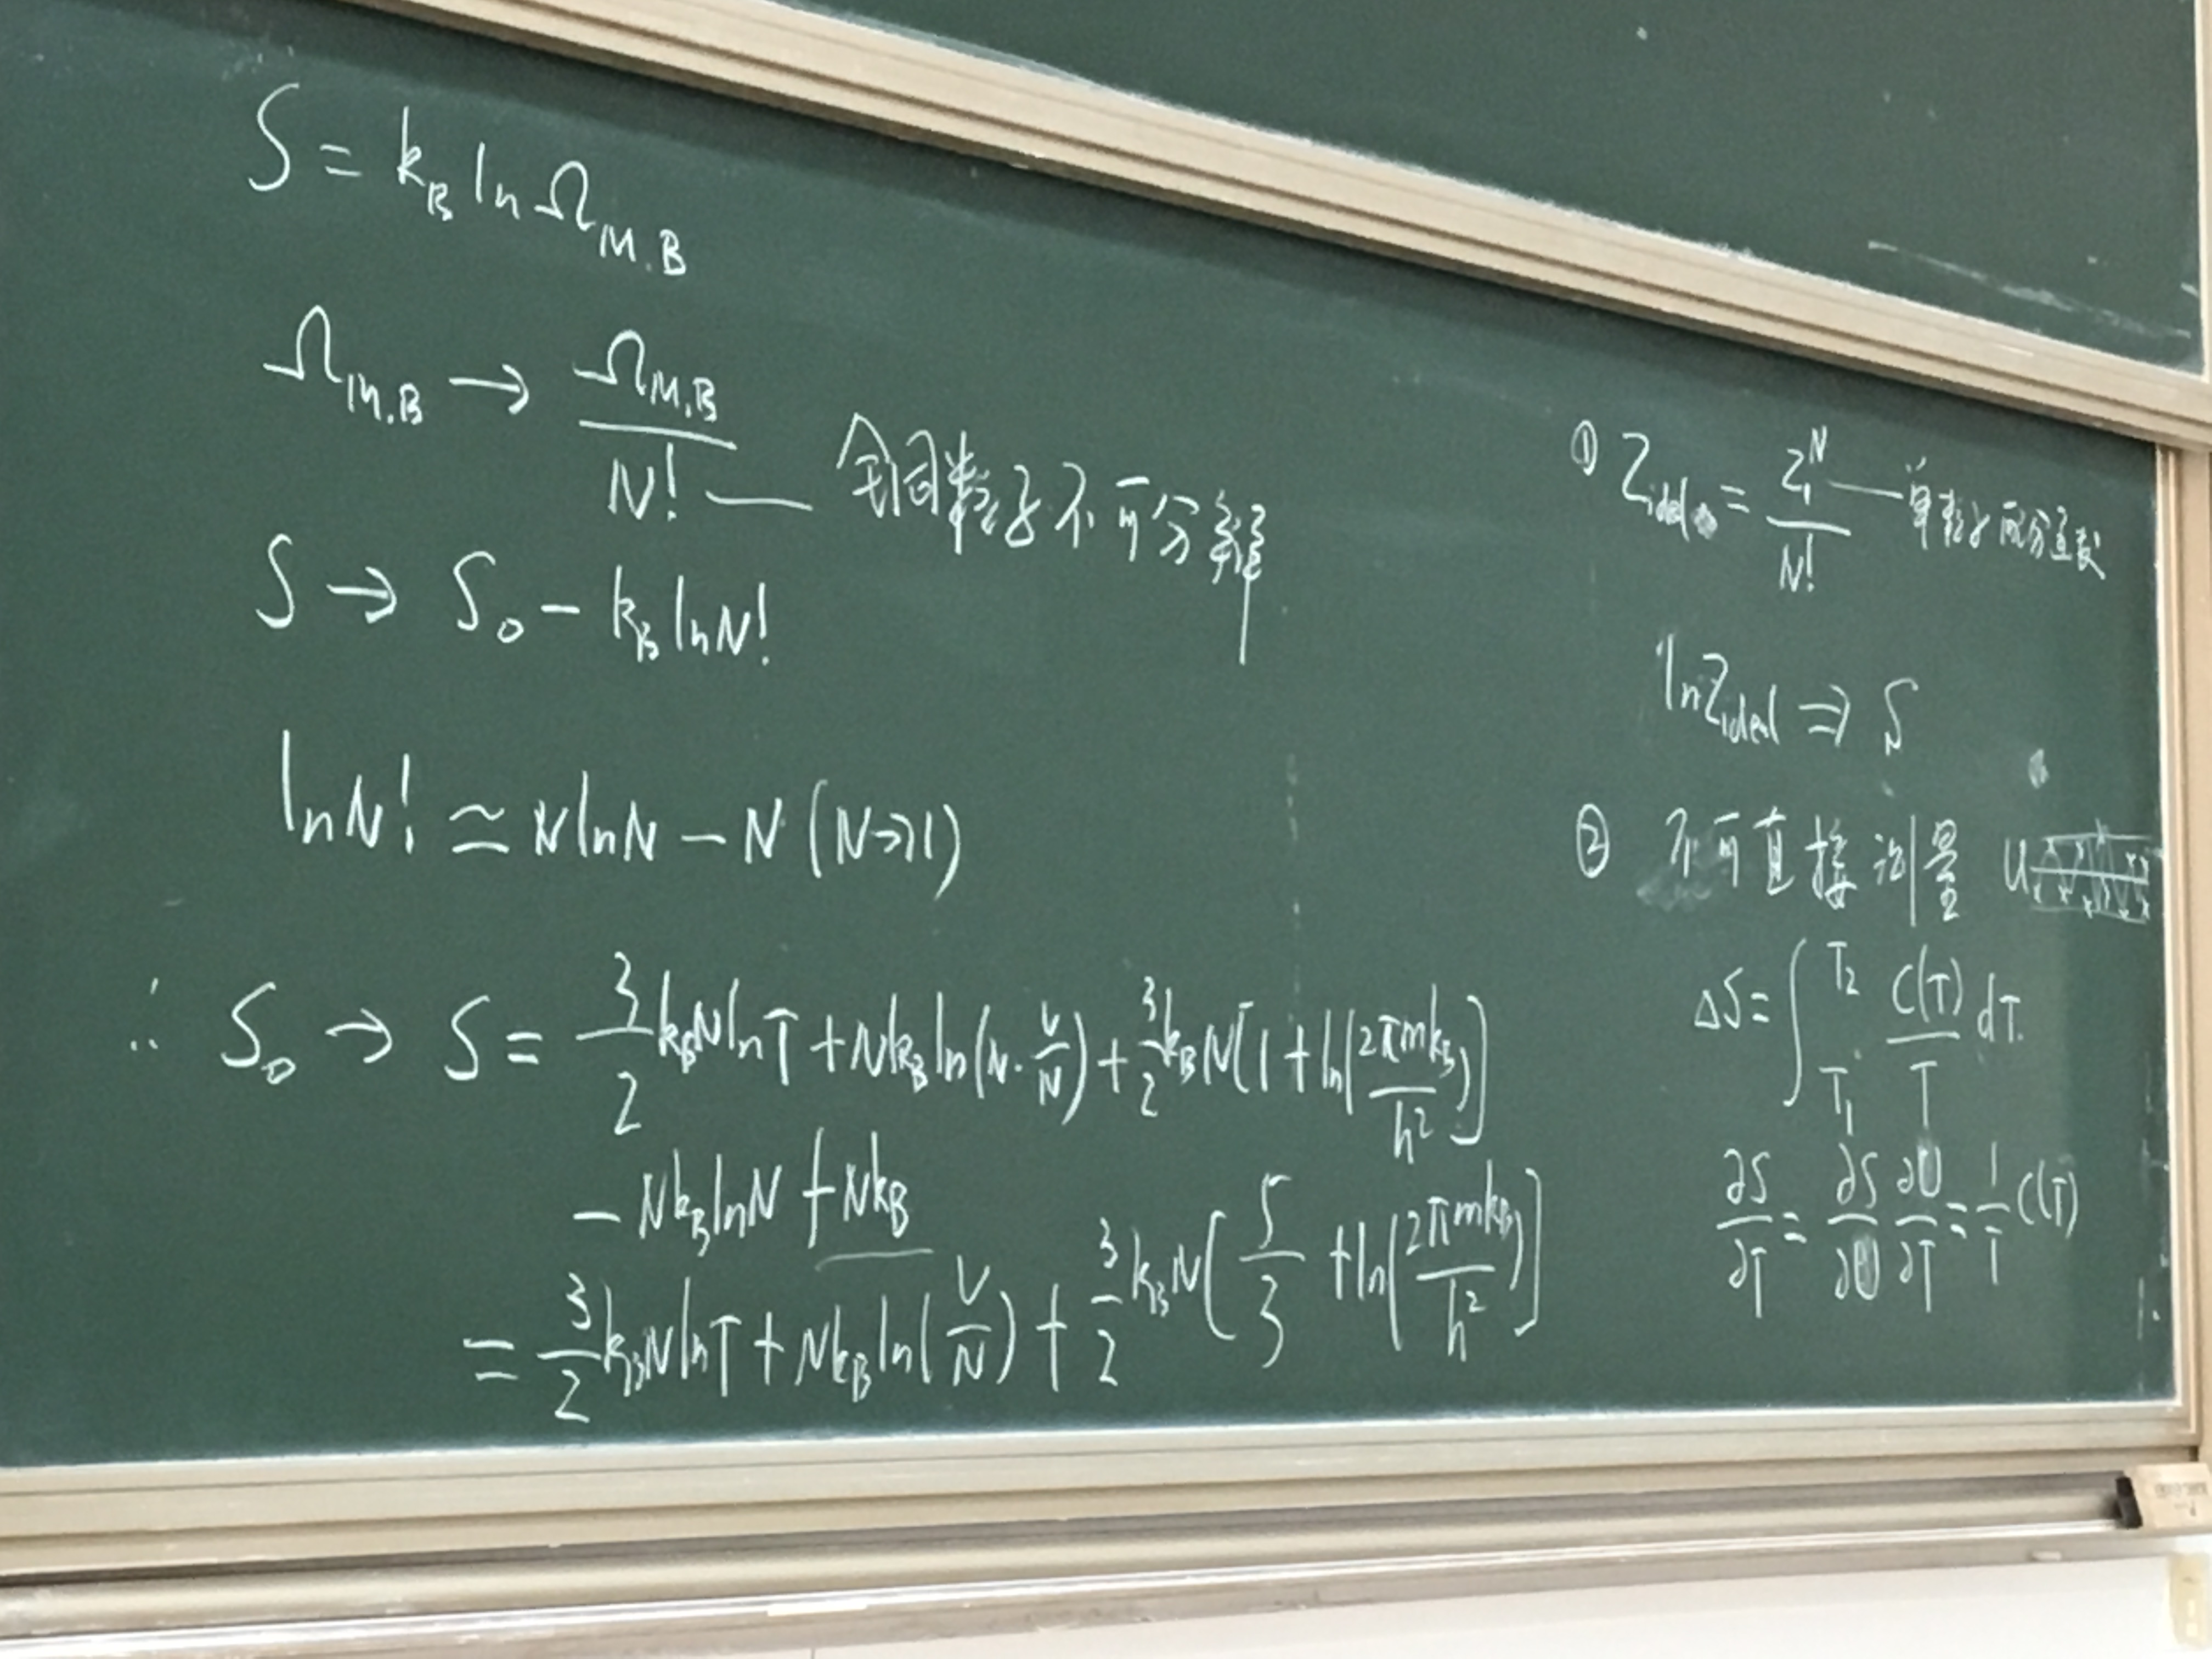 S = k_B ln Ω_{M.B}
Ω_{M.B} → Ω_{M.B} / N! — 全同粒子不可分辨
S → S_0 - k_B ln N!
ln N! ≃ N ln N - N (N>>1)
∴ S_0 → S = 3/2 k_B N ln T + N k_B ln(N · V/N) + 3/2 k_B N [1 + ln(2πmk_B / h²)]
- N k_B ln N + N k_B
= 3/2 k_B N ln T + N k_B ln(V/N) + 3/2 k_B N [5/3 + ln(2πmk_B / h²)]
① Z_{ideal} = Z_1^N / N! — 单粒子配分函数
ln Z_{ideal} ⇒ S
② 不可直接测量 U
ΔS = ∫_{T_1}^{T_2} C(T)/T dT.
∂S/∂T = ∂S/∂U ∂U/∂T = 1/T C(T)